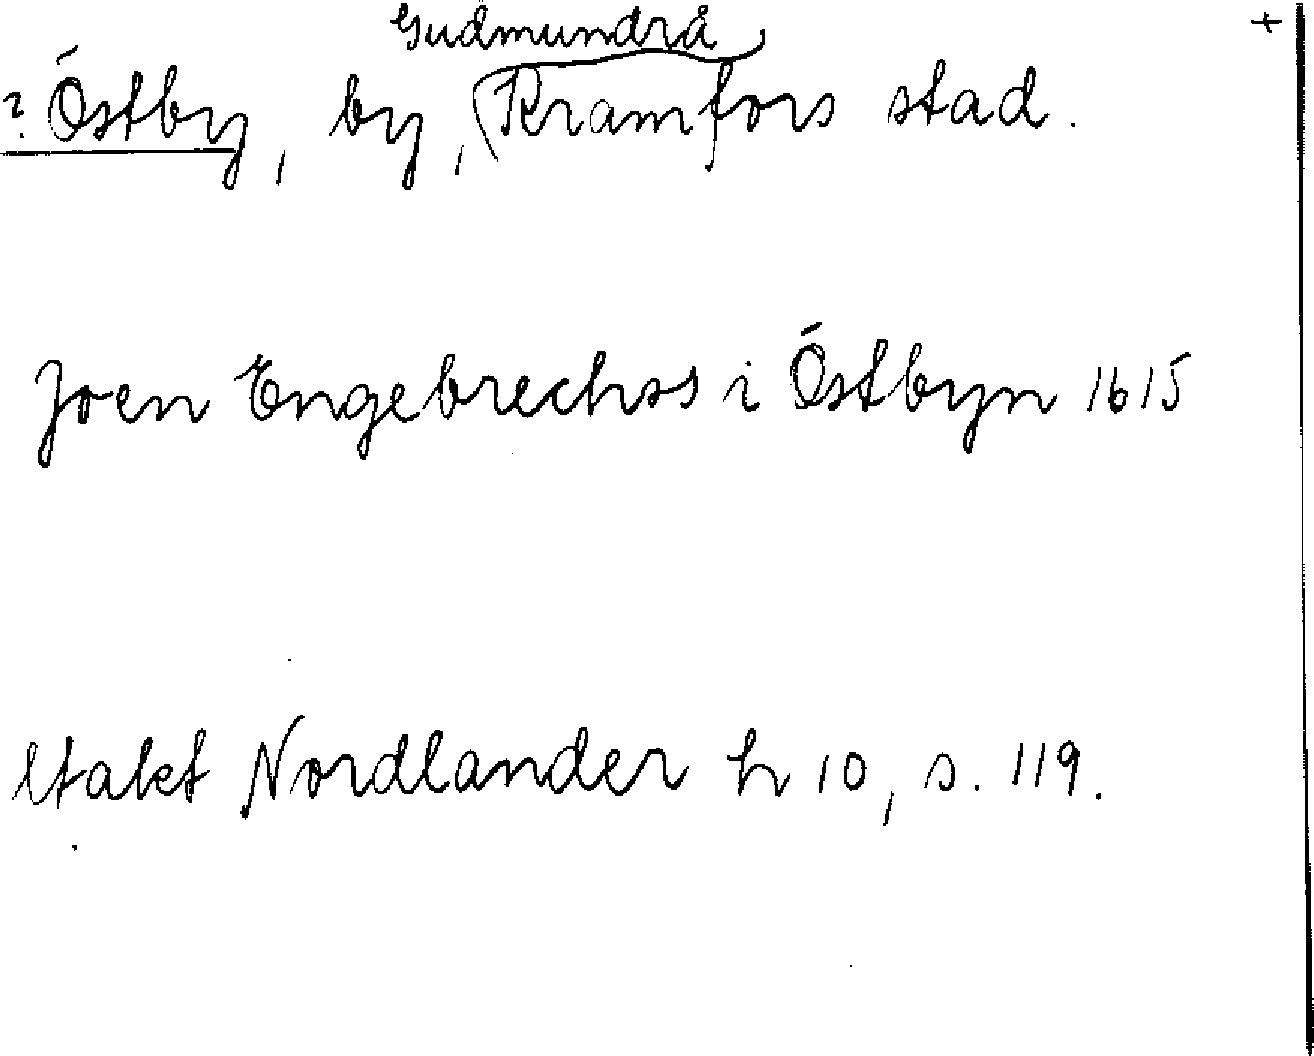 Gudmundrå +
? Östby, by, (Kramfors stad.
Joen Engebrechss i Östbyn 1615
Utakt Nordlander h 10, s. 119.